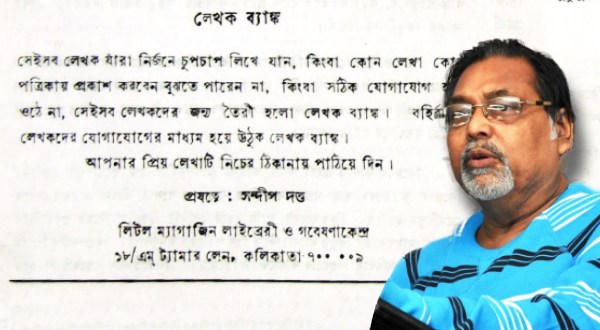 লেখক ব্যাঙ্ক
সেইসব লেখক যাঁরা নির্জনে চুপচাপ লিখে যান, কিংবা কোন লেখা
পত্রিকায় প্রকাশ করবেন বুঝতে পারেন না, কিংবা সঠিক যোগাযোগ
ওঠে না, সেইসব লেখকদের জন্য তৈরী হলো লেখক ব্যাঙ্ক।
লেখকদের যোগাযোগের মাধ্যম হয়ে উঠুক লেখক ব্যাঙ্ক।
আপনার প্রিয় লেখাটি নিচের ঠিকানায় পাঠিয়ে দিন।
প্রযত্নে : সন্দীপ দত্ত
লিটল ম্যাগাজিন লাইব্রেরী ও গবেষণাকেন্দ্র
১৮/এম্ ট্যামার লেন, কলিকাতা ৭০০ ০০৯